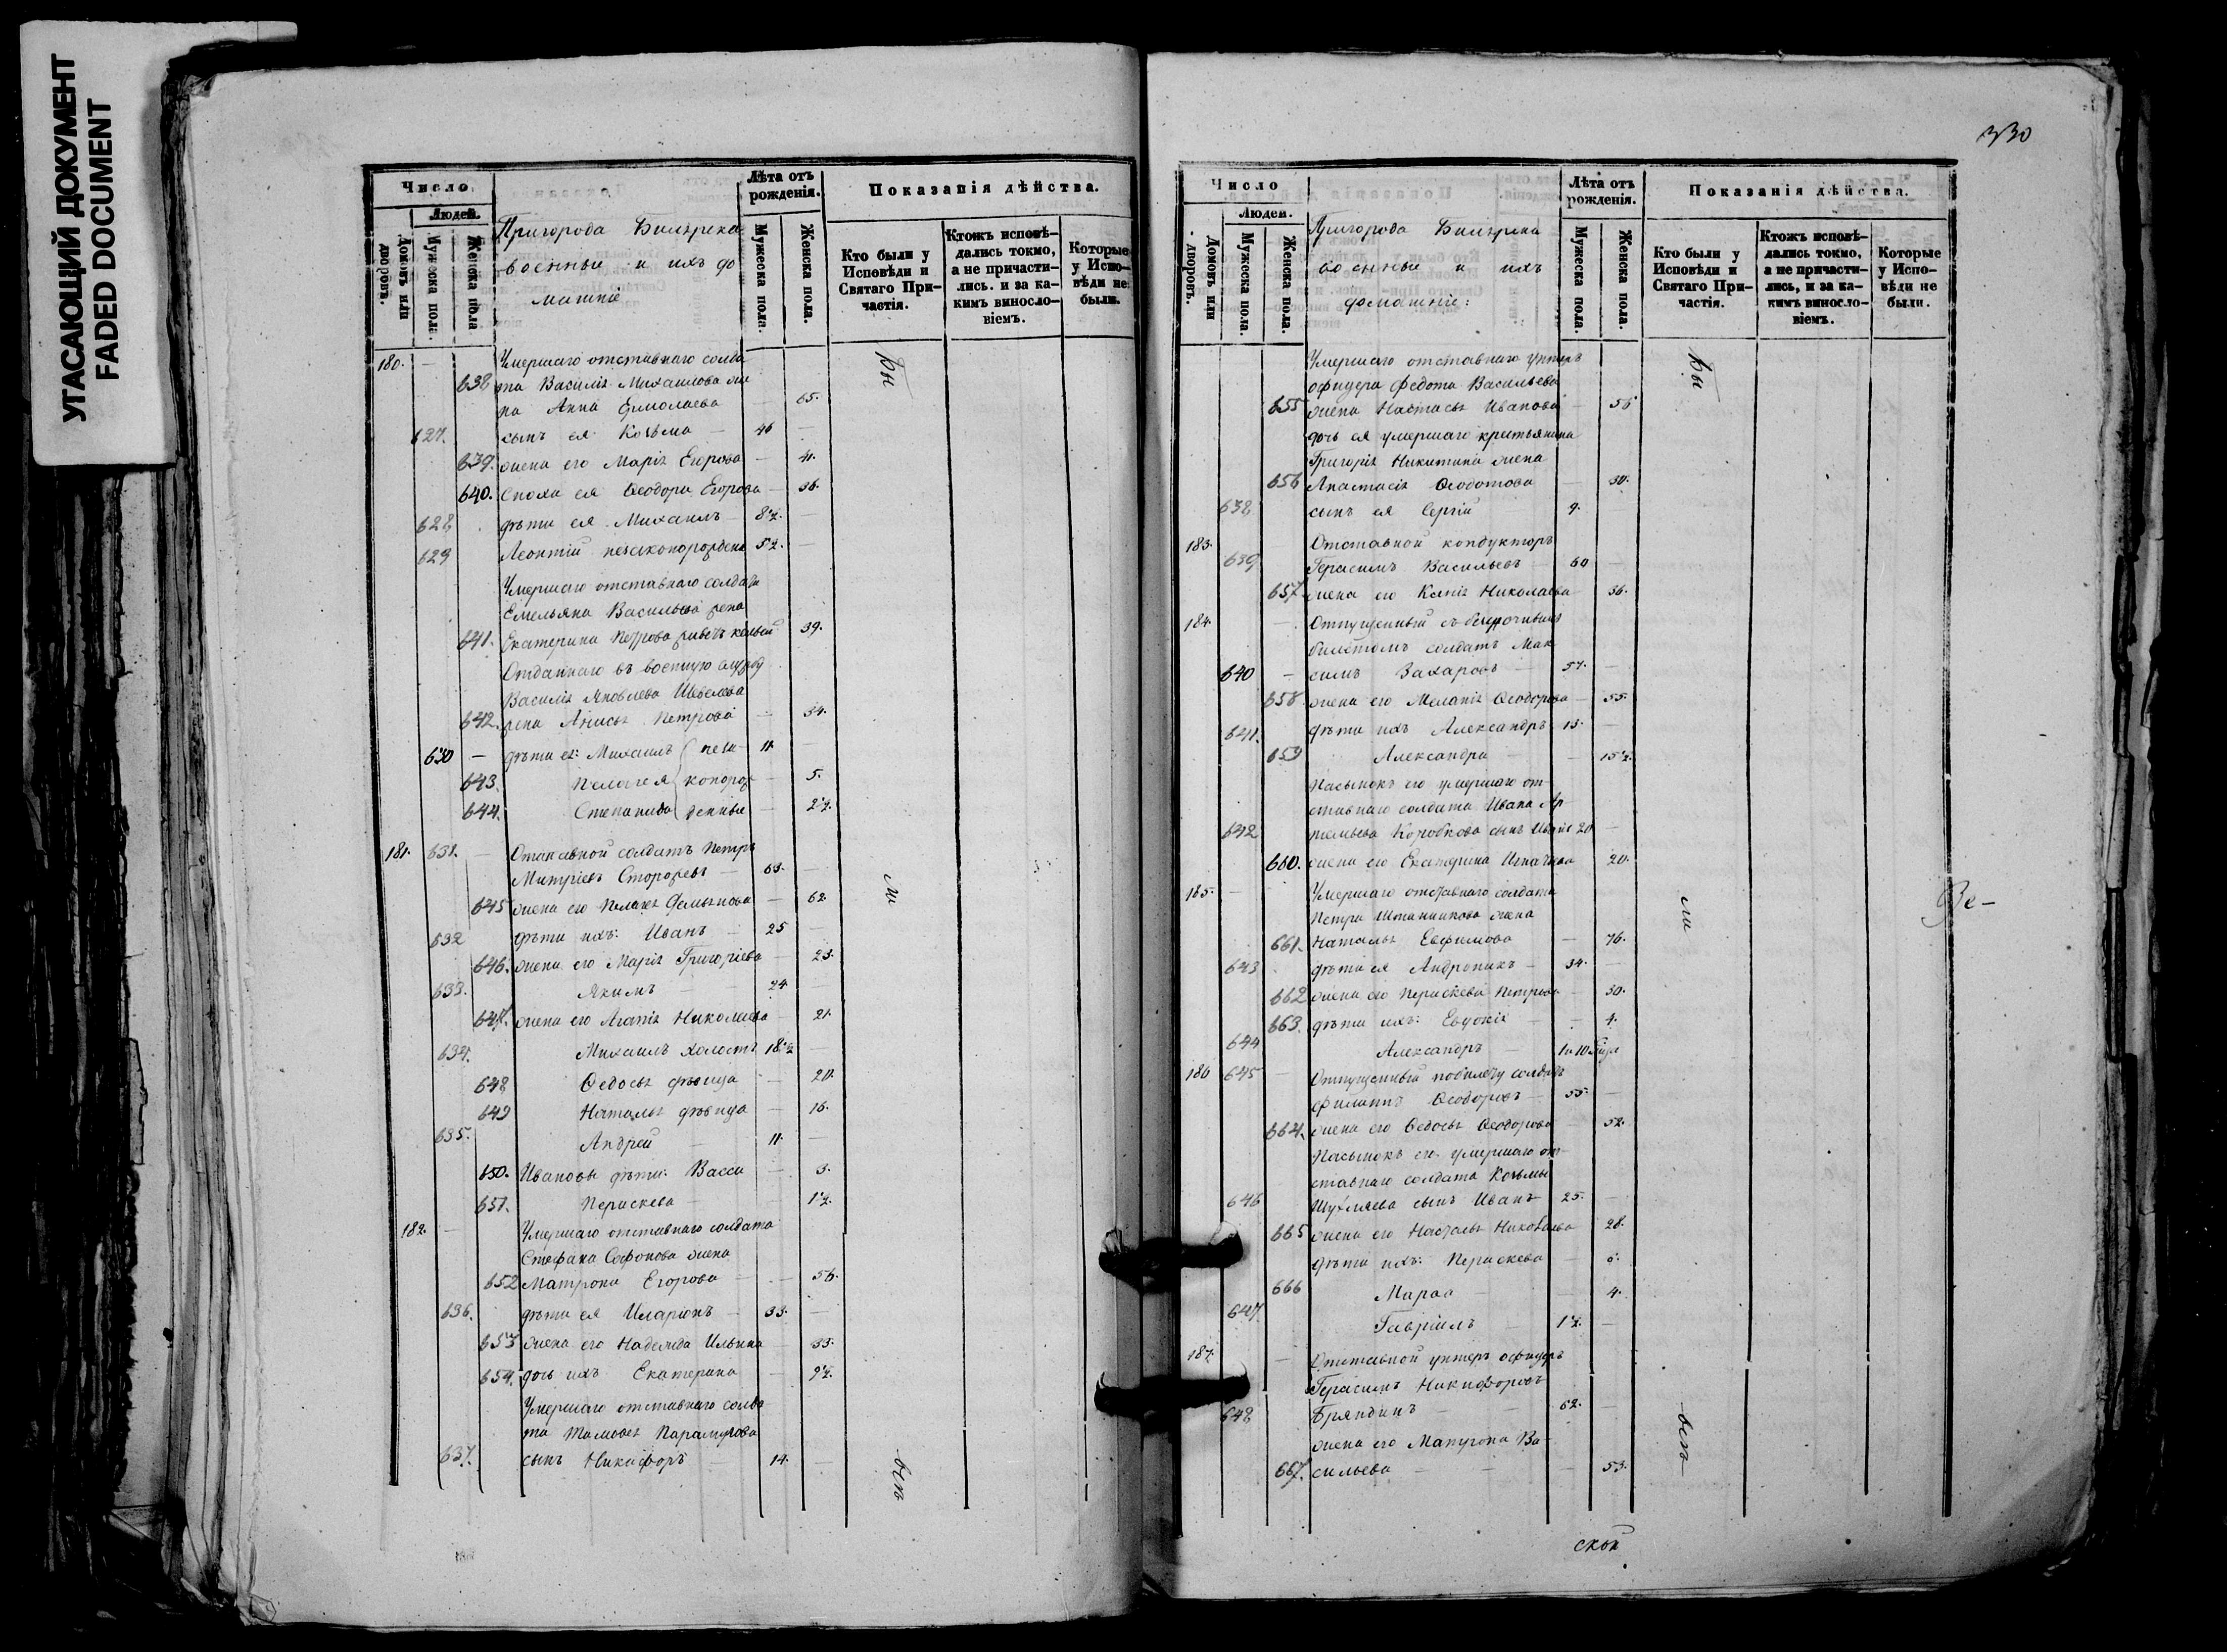 УГАСАЮЩИЙ ДОКУМЕНТ
FADED DOCUMENT
Число
Людей.
Домовъ или дворовъ.
Мужеска пола.
Женска пола
Пригорода Билярска
военные и ихъ до
машніе
Лѣта отъ рожденія.
Мужеска пола.
Женска пола.
Показанія дѣйства.
Кто были у Исповѣди и Святаго Причастія.
Ктожъ исповѣдались токмо, а не причастились. и за какимъ винословіемъ.
Которые у Исповѣди не были.
180. — Умершаго отставнаго солда
638 та Василія Михаилова же
на Анна Ермолаева — 65.
627. сынъ ея Козьма — 46 —
639. жена его Марія Егорова — 41.
640. Сноха ея Ѳеодора Егорова — 36.
628 дѣти ея Михаилъ — 8½. —
629 Леонтій незаконорожден 5½. —
Умершаго отставнаго солдата
Емельяна Васильева жена
641. Екатерина Петрова 39.
Отданнаго въ военную службу
Василія Яковлева
642. жена Анисья Петрова — 34.
630 — дѣти ея: Михаилъ неза- 11. —
643. Пелагея конорож — 5.
644. Степанида денные — 2½.
181. 631. — Отставной солдатъ Петръ
Митріевъ Сторожевъ — 63. —
645 жена его Пелагея Демьянова — 62.
632 дѣти ихъ: Иванъ — 25 —
646. жена его Марія Григоріева — 23.
633. Якимъ — 24
647. жена его Агапія Николаева — 21.
634. Михаилъ холостъ 18½ —
648 Ѳедосья дѣвица — 20.
649 Наталья дѣвица — 16.
635. Андрей — 11. —
650. Ивановы дѣти: Васса — 3.
651. Перискева — 1½.
182. — Умершаго отставнаго солдата
Стефана Софонова жена
652 Матрона Егорова — — 56.
636. дѣти ея Иларіонъ — 33. —
653 жена его Надежда Ильина — 33.
654. дочь ихъ Екатерина — 9½.
Умершаго отставнаго солда
та
637. сынъ Никифоръ — 14. —
Бы
ли
всѣ
330
Число
Людей.
Домовъ или дворовъ.
Мужеска пола.
Женска пола.
Пригорода Билярска
военные и ихъ
домашніе:
Лѣта отъ рожденія.
Мужеска пола.
Женска пола.
Показанія дѣйства.
Кто были у Исповѣди и Святаго Причастія.
Ктожъ исповѣдались токмо, а не причастились, и за какимъ винословіемъ.
Которые у Исповѣди не были.
Умершаго отставнаго унтеръ
офицера Федота Васильева
655 жена Настасья Иванова — 56
дочь ея умершаго крестьянина
Григорія Никитина жена
656 Анастасія Ѳедотова — 30.
638 сынъ ея Сергій 9. —
183. Отставной кондукторъ
639 Герасимъ Васильевъ — 60 —
657. жена его Ксенія Николаева — 36.
184. — Отпущенный съ безсрочнымъ
билетомъ солдатъ Мак
640 — симъ Захаровъ — 57. —
658. жена его Меланія Ѳеодорова — 55.
641. дѣти ихъ Александръ — 13. —
659 Александра — — 15½.
Пасынокъ его умершаго от-
ставнаго солдата Ивана Ар
642 темьева Коробкова сынъ Иванъ 20 —
660. жена его Екатерина Игнатьева 20.
185. — Умершаго отставнаго солдата
Петра жена
661. Наталья Евфимова — 76.
643 дѣти ея Андроникъ — 34. —
662 жена его Перискева Петрова — 30.
663. дѣти ихъ: Евдокія — — 4.
644 Александръ —
186 645 — Отпущенный по билету солдатъ
Филиппъ Ѳеодоровъ — 55. —
664. жена его Ѳедосья Ѳеодорова — 52.
Пасынокъ его умершаго от-
ставнаго солдата Козьмы
646 сынъ Иванъ 25. —
665 жена его Наталья Николаева 28.
дѣти ихъ: Перискева —
666 Марѳа — — 4.
647. Гавріилъ — 1½. —
187. — Отставной унтеръ офицеръ
Герасимъ Никифоровъ
648 Бряндинъ — — 62. —
жена его Матрона Ва-
667. сильева — — — 53.
Бы
ли
всѣ
Ве-
скій